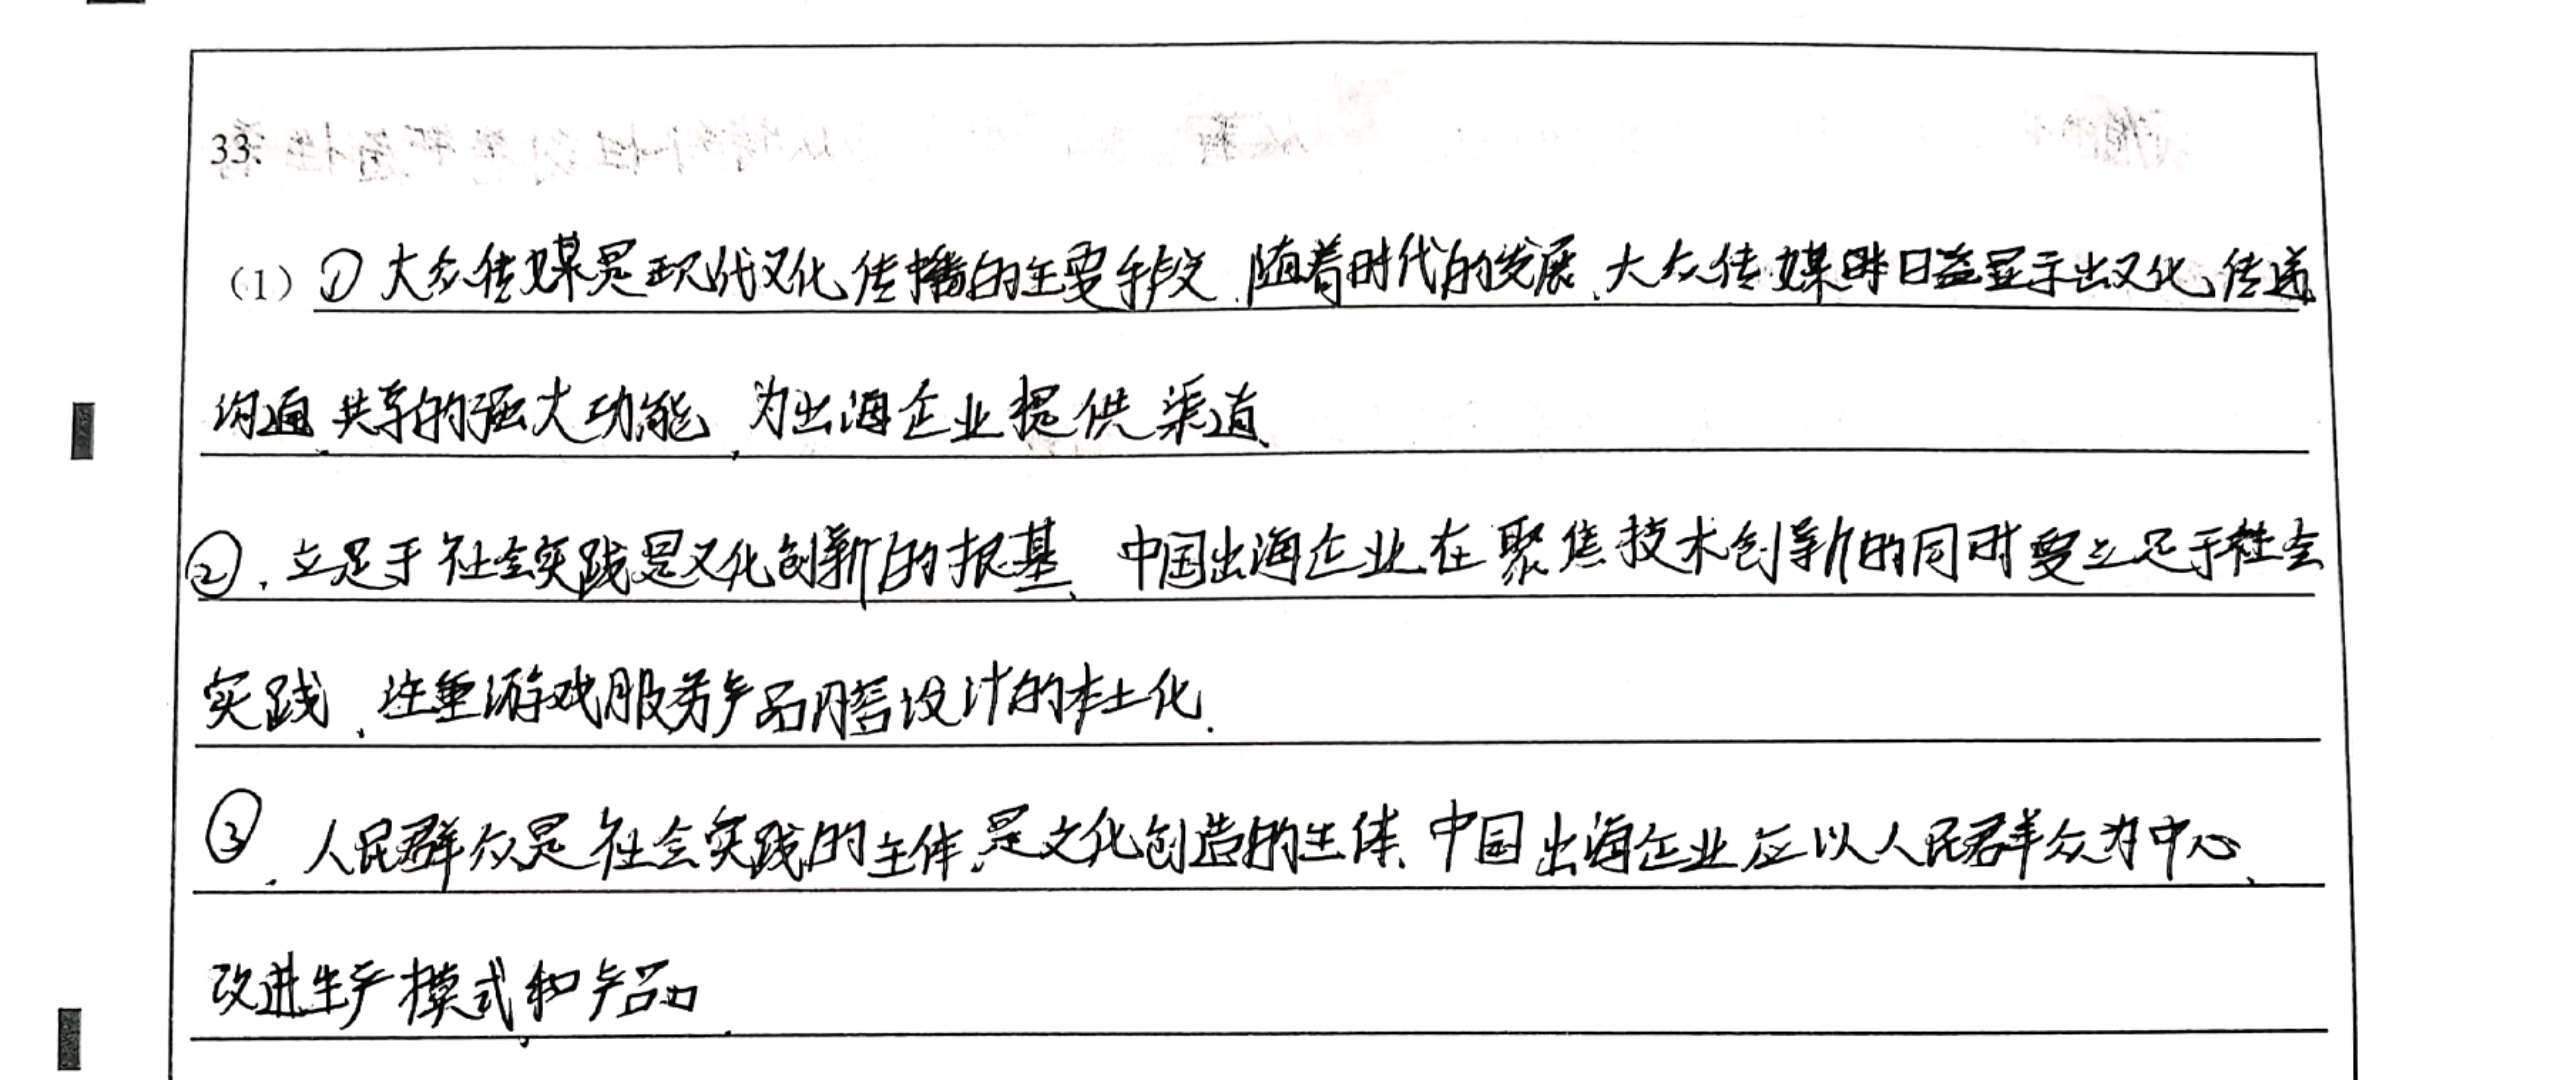 33.
(1) ① 大众传媒是现代文化传播的主要手段.随着时代的发展、大众传媒日益显示出文化传递
沟通、共享的强大功能,为出海企业提供渠道、
②.立足于社会实践是文化创新的根基、中国出海企业在聚焦技术创新的同时要立足于社会
实践、注重游戏服务产品内容设计的本土化.
③.人民群众是社会实践的主体.是文化创造的主体.中国出海企业应以人民群众为中心、
改进生产模式和产品.